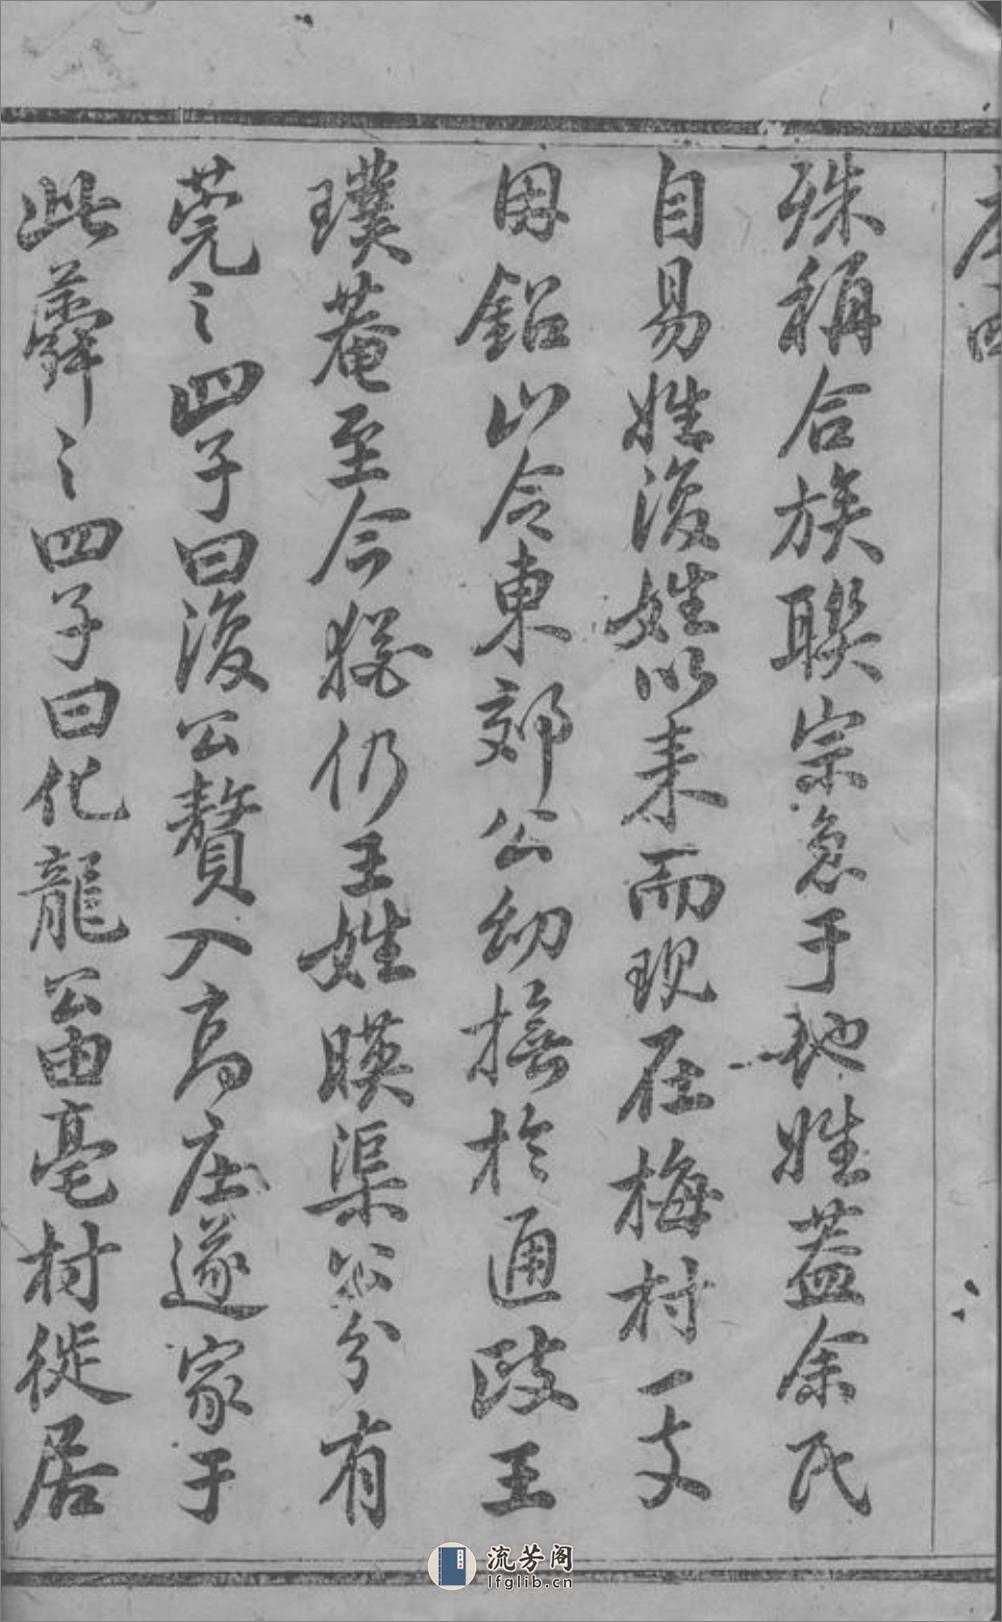 殊稱合族聯宗急于他姓蓋余氏
自易姓復姓以来而現在梅村一支
因鉛山令東郊公幼撫於通政王
璞菴至今猶仍王姓暎渠公分有
莞之四子曰復公贅入高庄遂家于
此舜之四子曰化龍公由亳村徙居
流芳阁
lfglib.cn